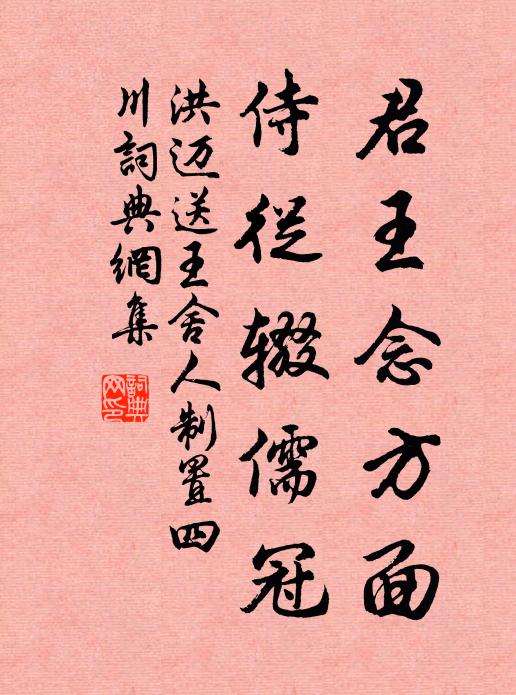 君王念方面
侍從辍儒冠
洪迈送王舍人制置四
川詞典網集
詞典
网印